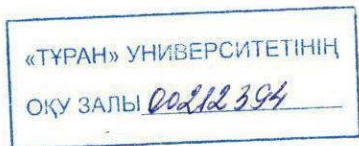 «ТҰРАН» УНИВЕРСИТЕТІНІҢ
ОҚУ ЗАЛЫ 00212394